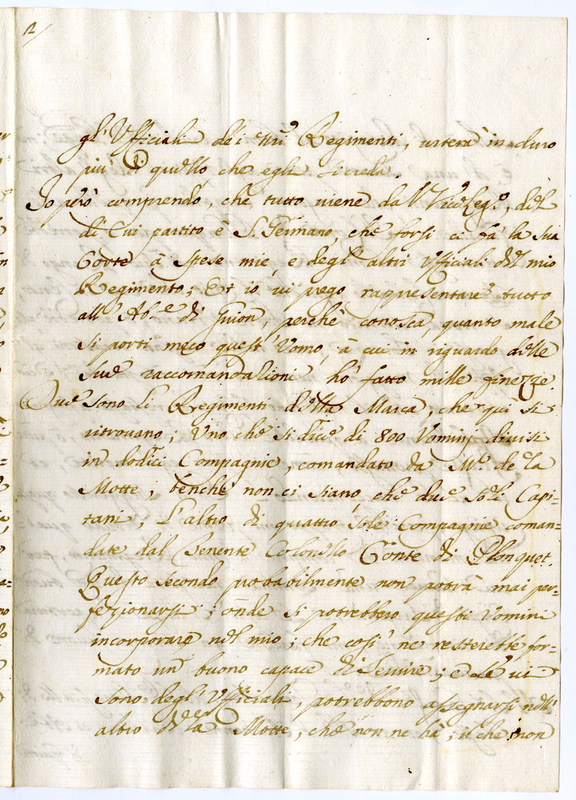 2/
gl' Ufficiali dei ttri Regimenti, resterà in duro
più di quello che egli si creda.
Io però comprendo, che tutto viene dall' del
di cui partito è S. Germano, che forsi ci fà la sua
Corte à spese mie, e degl' altri Ufficiali del mio
Regimento; Et io vi prego rapresentare tutto
all' Ab.e di Guion, perchè conosca, quanto male
si porti meco quest' Uomo, à cui in riguardo delle
sue raccomandationi hò fatto mille finezze.
Due sono li Regimenti della Marca, che qui si
ritrovano; Uno che si dice di 800 Uomini divisi
in dodici Compagnie, comandato da Mr. de la
Motte; benchè non ci siano, che due soli Capi-
tani; L'altro di quattro sole Compagnie coman-
date dal Tenente Colonello Conte di Plonquet.
Questo secondo probabilmente non potrà mai per-
fezionarsi; onde si potrebbero questi Uomini
incorporare nel mio; che così ne resterebbe for-
mato un buono capace di servire; e se vi
sono degl' Ufficiali, potrebbono assegnarsi nell'
altro de la Motte, che non ne hà; il che non